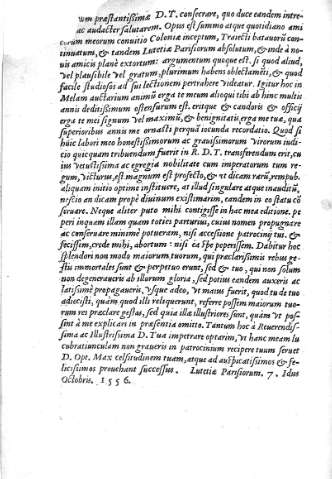 tum præstantissimæ D. T. consecrare, quo duce eandem intre-
ac audacter salutarem. Opus est summo atque quotidiano ami
corum meorum conuitio Coloniæ inceptum, Traiecti batauorū con-
tinuatum, & tandem Lutetiæ Parisiorum absolutum, & unde à no-
uis amicis planè extortum: argumentum quoque est, si quod aliud,
vel plausibile vel gratum, plurimum habens oblectamēti, & quod
facile studiosos ad sui lectionem pertrahere videatur. Igitur hoc in
Melam auctarium animū erga te meum aloqui tibi ab hinc multis
annis deditissimum ostensurum est. eritque & candoris & officij
erga te mei signum vel maximū, & benignitatis, erga me tuæ, qua
superioribus annis me ornasti perquā iocunda recordatio. Quod si
huic labori meo honestissimorum ac grauissimorum Virorum iudi-
tio quicquam tribuendum fuerit in R. D. T. transferendum erit, cu
ius vetustissima ac egregia nobilitate cum imperatorum tum re-
gum, victurus, est magnum est profecto, & vt dicam rarū, rempub.
aliquam initio optime instituere, at illud singulare atque inauditū,
nescio an dicam propè diuinum existimarim, eandem in eo statu cō
seruare. Neque aliter puto mihi contigisse in hac mea editione. pe
peri inquam illam quam toties parturius, cuius nomen propugnare
ac conseruare minimè potueram, nisi accesione patrocinij tui. &
fecissem, crede mihi, abortum: nisi ea spe peperissem. Dabitur hoc
splendori non modo maiorum tuorum, qui præclarissimis rebus ge-
stis immortales sunt & perpetuo erunt, sed & tuo, qui non solum
non degeneraueris ab illorum gloria, sed potius eandem auxeris ac
latissimè propagaueris, vsque adeo, vt maius fuerit, quod tu de tuo
adiecisti, quàm quod illi relequerunt, referre possem maiorum tuo-
rum res præclare gestas, sed quia illæ illustriores sunt, quàm vt pos-
sint à me explicari in præsentia omitto. Tantum hoc à Reuerendis-
sima ac Illustrissima D. Tua impetrare optarim, vt hanc meam lu
cubratiunculam non graueris in patrocinium recipere tuum seruet
D. Opt. Max celsitudinem tuam, atque ad auspicatissimos & fe-
licissimos prouehant successus. Lutetiæ Parisiorum. 7. Idus
Octobris. 1556.